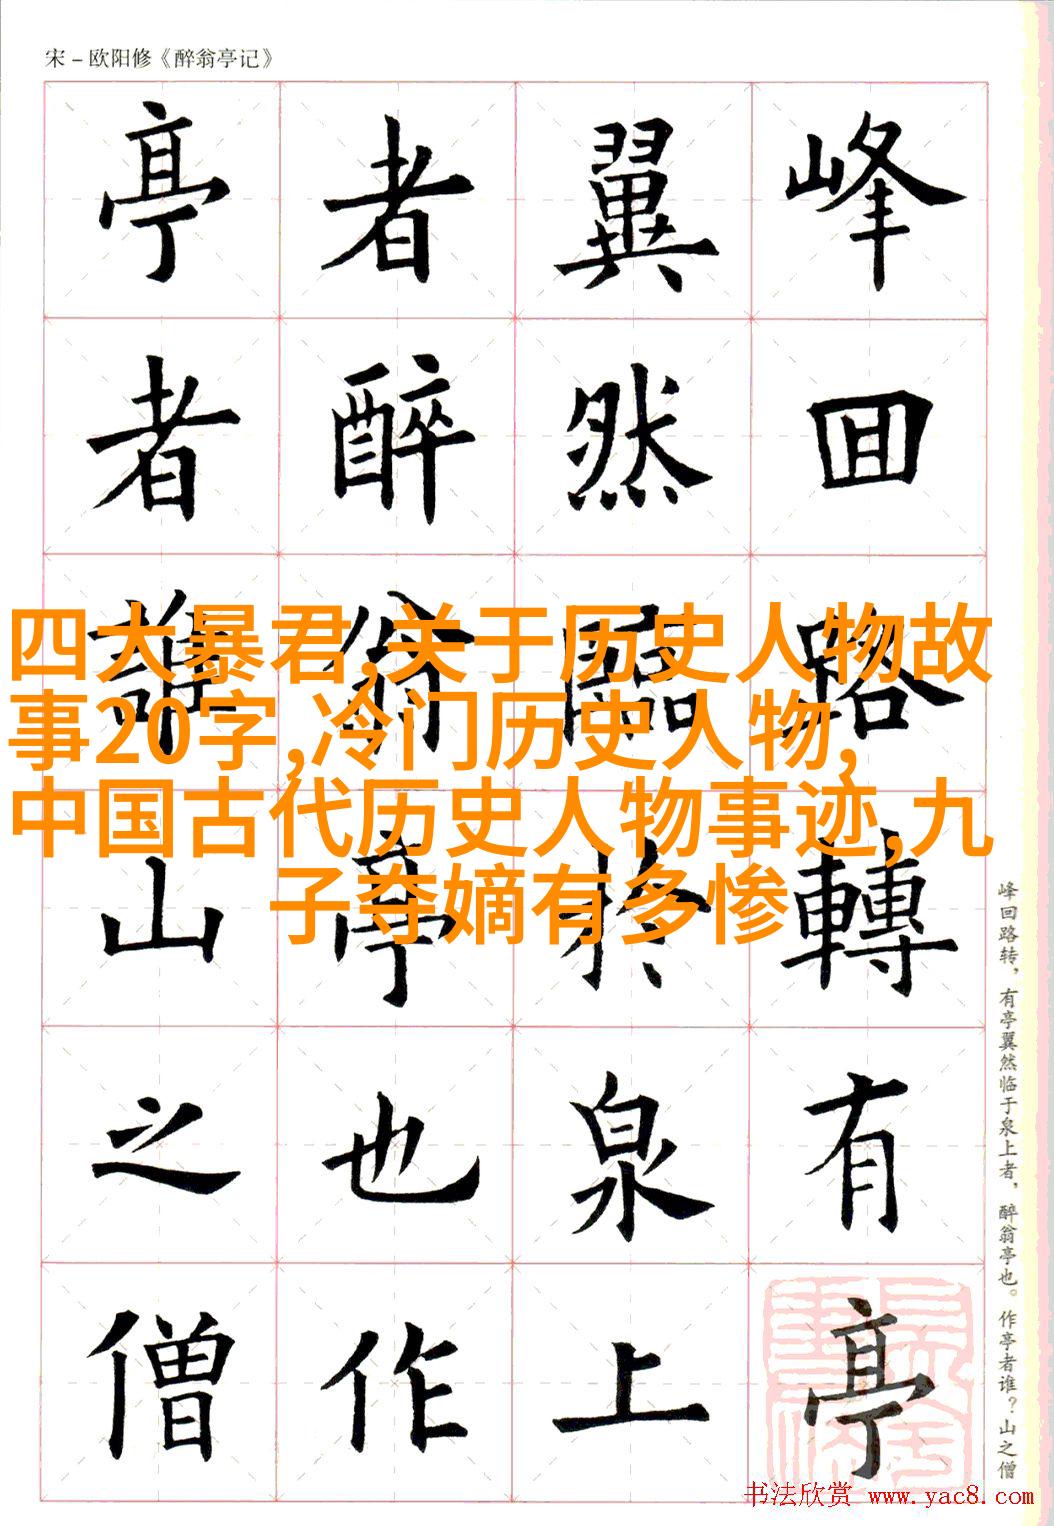 宋－欧阳修《醉翁亭记》
峰回路轉有亭
翼然臨於泉上
者醉翁亭也作
亭者誰山之僧
四大暴君,关于历史人物故
事20字,冷门历史人物,
中国古代历史人物事迹,九
子夺嫡有多惨
峰回路转，有亭翼然临于泉上者，醉翁亭也。作亭者谁？山之僧
书法欣赏 www.yac8.com